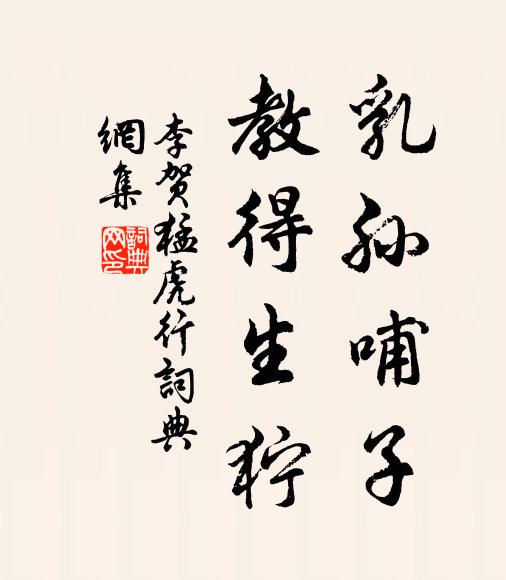 乳孙哺子
教得生狞
李贺猛虎行詞典
網集
詞典
网印